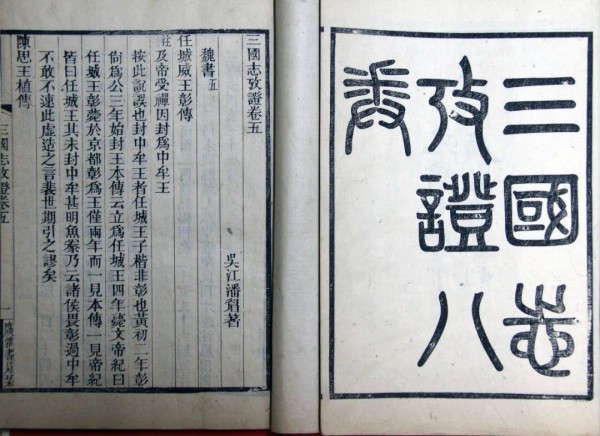 三國志
攷證八
卷
三國志攷證卷五
吳江潘眉著
魏書五
任城威王彰傳
註及帝受禪因封爲中牟王
按此說誤也封中牟王者任城王子楷非彰也黃初二年彰
尙爲公三年始封王本傳云立爲任城王四年薨文帝紀曰
任城王彰薨於京都彰爲王僅兩年而一見本傳一見帝紀
皆曰任城王其未封中牟甚明魚豢乃云諸侯畏彰過中牟
不敢不速此虛造之言裴世期引之謬矣
陳思王植傳
三國志攷證卷五
一